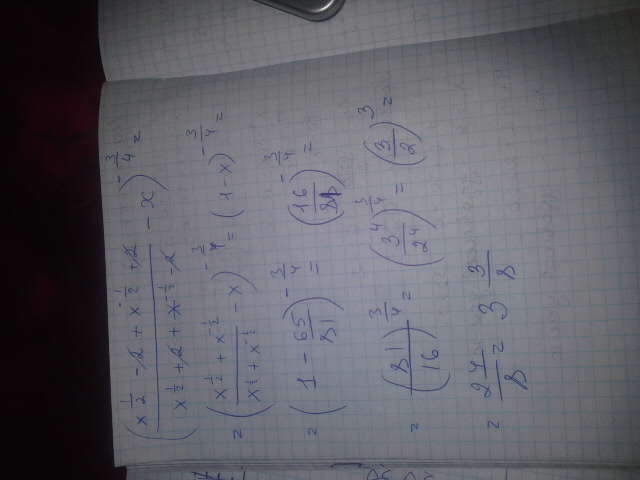 (x^{1/2} - 2 + x^{-1/2} + 2 / x^{1/2} + 2 + x^{-1/2} - 2 - x)^{-3/4} =
= (x^{1/2} + x^{-1/2} / x^{1/2} + x^{-1/2} - x)^{-3/4} = (1 - x)^{-3/4} =
= (1 - 65/81)^{-3/4} = (16/81)^{-3/4} =
= (81/16)^{3/4} = (3^4/2^4)^{3/4} = (3/2)^3 =
= 27/8 = 3 3/8